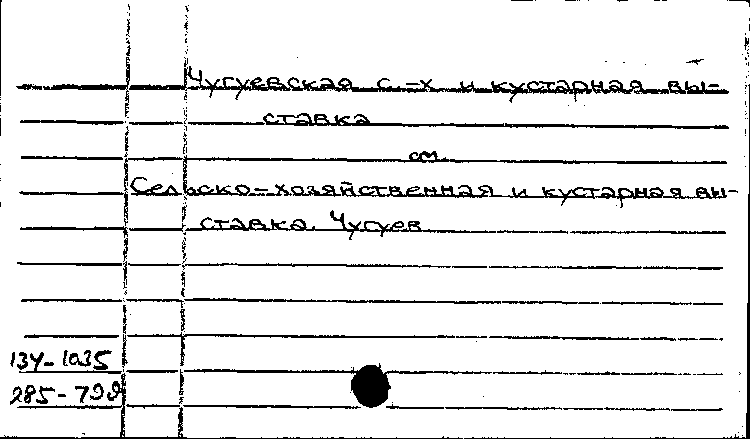 Чугуевская с.-х и кустарная вы-
ставка
см.
Сельско-хозяйственная и кустарная вы-
ставка. Чугуев
134-1035
285-799